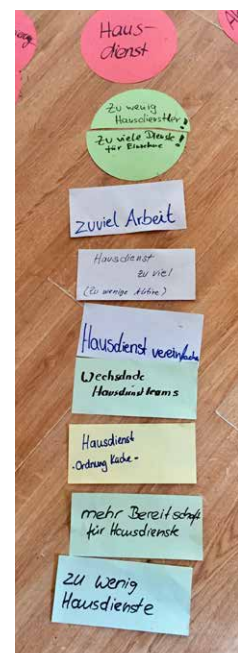 Haus-
dienst
Zu wenig
Hausdienstler!
Zu viele Dienste!
für Einzelne
zuviel Arbeit
Hausdienst
zu viel
(Zu wenige Aktive)
Hausdienst vereinfachen
Wechselnde
Hausdienstteams
Hausdienst
-Ordnung Küche-
mehr Bereitschaft
für Hausdienste
zu wenig
Hausdienste